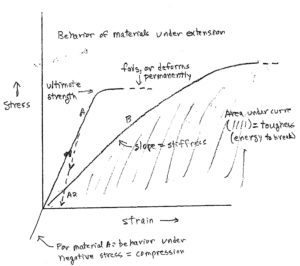 Behavior of materials under extension
fails, or deforms
permanently
ultimate
strength
Stress
A
B
Area under curve
(////) = toughness
(energy to break)
slope = stiffness
A2
strain
For material A: behavior under
negative stress = compression